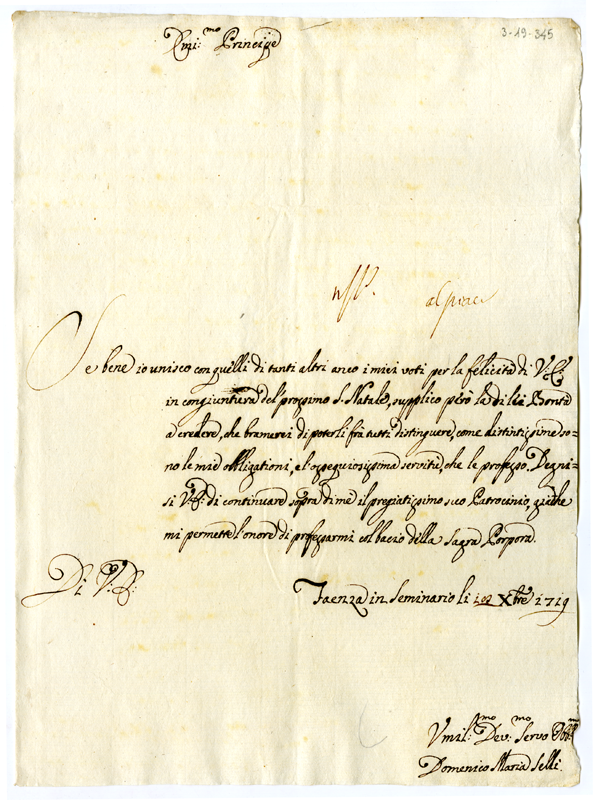 3-19-345
Emi:mo Principe
Se bene io unisco con quelli di tanti altri anco i miei voti per la felicità di V: E:
in congiuntura del prossimo S. Natale, supplico però la di lei Bontà
a credere, che bramerei di poterli frà tutti distinguere, come distintissime so=
no le mie obligationi, e l'ossequiosissima servitù, che le professo. Degni=
si V: E: di continuare sopra di me il pregiatissimo suo Patrocinio, giache
mi permette l'onore di professarmi col bacio della Sagra Porpora.
Di V: E:
Faenza in Seminario li Xbre 1719
Vmil:mo Dev:mo Servo Obl:mo
Domenico Maria Selli.